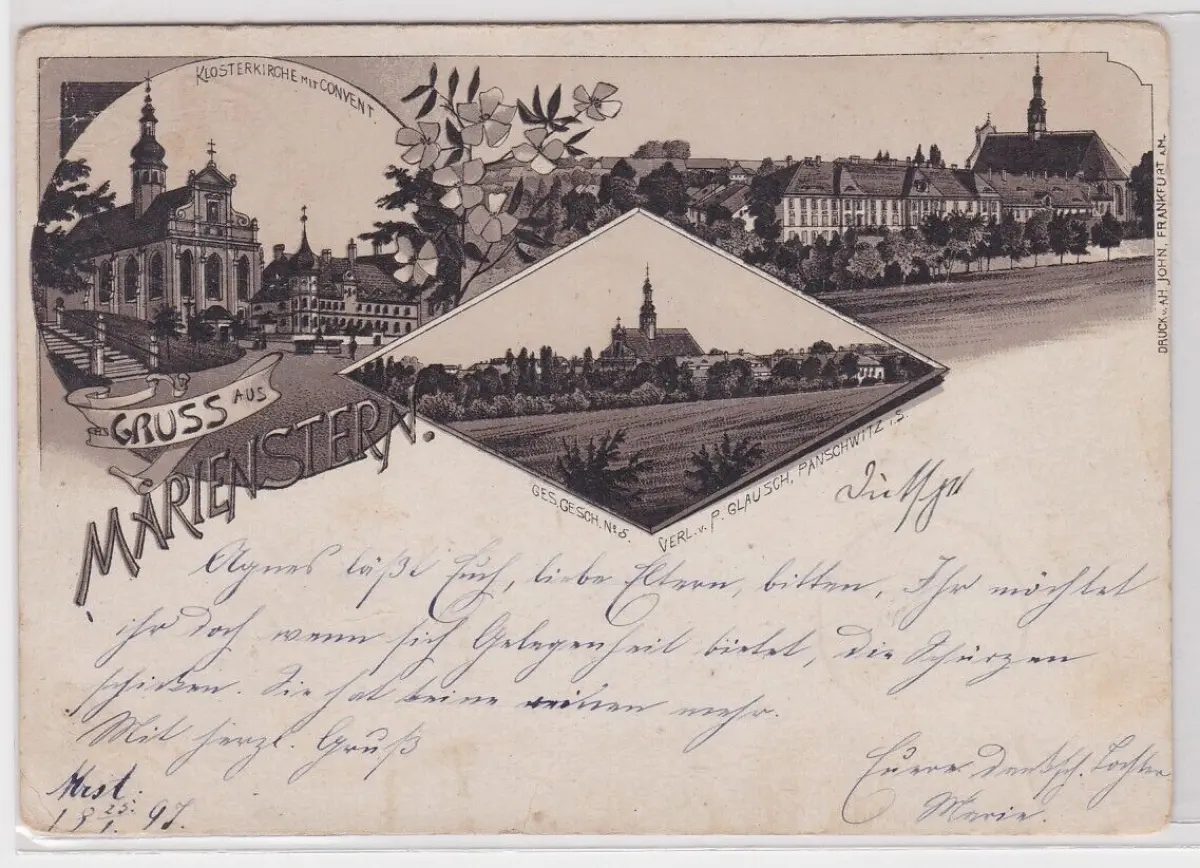 KLOSTERKIRCHE MIT CONVENT
GRUSS AUS
MARIENSTERN.
DRUCK v. AH. JOHN, FRANKFURT A.M.
GES. GESCH. No 5.
VERL. v. P. GLAUSCH, PANSCHWITZ i. S.
Agnes läßt Euch, liebe Eltern, bitten, Ihr möchtet
ihr doch wenn sich Gelegenheit bietet, die Schürzen
schicken. Sie hat keine mehr.
Mit herzl. Gruß
Eure Tochter
Marie.
Mrst.
18 25. 1. 97.